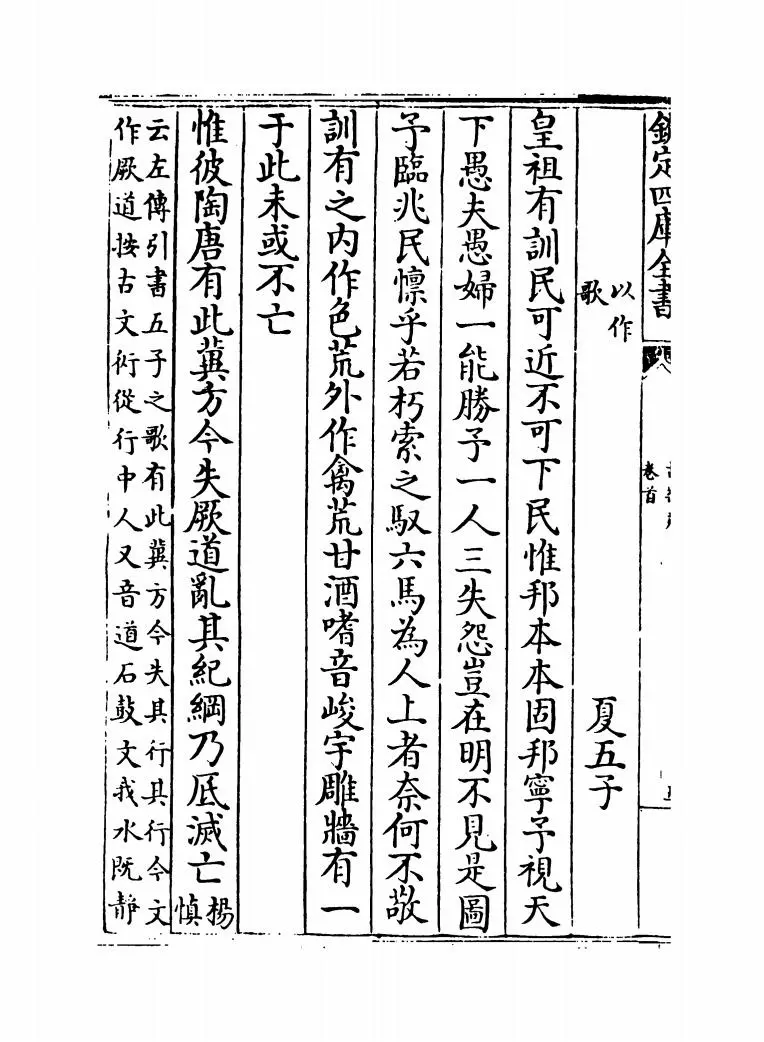 欽定四庫全書
卷首
以作
歌
夏五子
皇祖有訓民可近不可下民惟邦本本固邦寧予視天
下愚夫愚婦一能勝予一人三失怨豈在明不見是圖
予臨兆民懍乎若朽索之馭六馬為人上者奈何不敬
訓有之内作色荒外作禽荒甘酒嗜音峻宇雕牆有一
于此未或不亡
惟彼陶唐有此冀方今失厥道亂其紀綱乃厎滅亡楊
慎
云左傳引書五子之歌有此冀方今失其行其行今文
作厥道按古文從行中人又音道石鼓文我水既靜